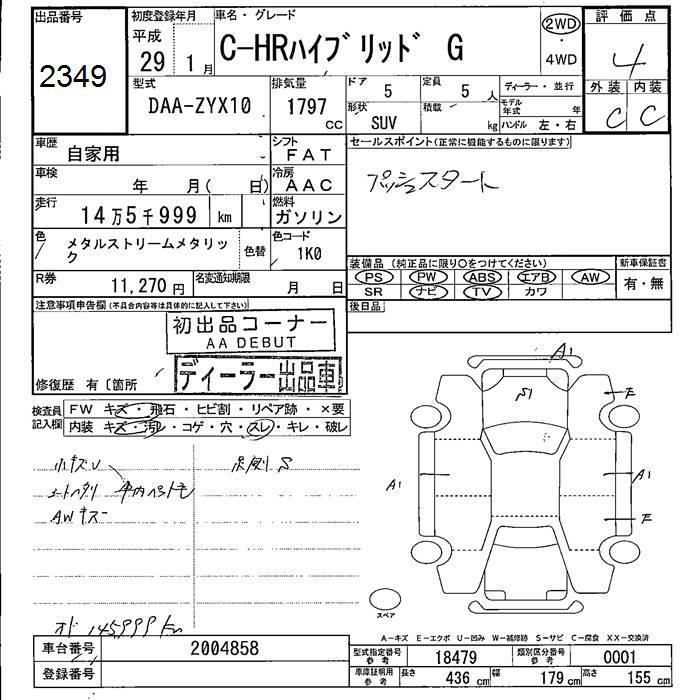 出品番号
2349
初度登録年月
平成
29年 1月
車名・グレード
C-HRハイブリッド G
2WD
・
4WD
評価点
4
外装 内装
C C
型式
DAA-ZYX10
排気量
1797
cc
ドア
5
定員
5 人
形状
SUV
積載
kg
ディーラー・並行
モデル年式 年
ハンドル 左・右
車歴
自家用
シフト
FAT
車検
年 月( 日)
冷房
AAC
走行
14万5千999 km
燃料
ガソリン
色
メタルストリームメタリック
色替
色コード
1K0
R券
11,270円
名変通知期限
月 日
セールスポイント(正常に機能するものに限ります)
プッシュスタート
装備品(純正品に限り○をつけてください)
PS PW ABS エアB AW
SR ナビ TV カワ
新車保証書
有・無
後日品
注意事項申告欄(不具合内容等は具体的に記入して下さい)
初出品コーナー
AA DEBUT
ディーラー出品車
修復歴 有〔箇所
検査員記入欄
FW キズ・飛石・ヒビ割・リペア跡・×要
内装 キズ・汚レ・コゲ・穴・スレ・キレ・破レ
小キズU
シートヘタリ
車内ペット毛
AWキズ
足廻りS
オド 145999km
A1
S1
E
A1
A1
E
スペア
A-キズ E-エクボ U-凹み W-補修跡 S-サビ C-腐食 XX-交換済
車台番号
2004858
登録番号
型式指定番号
参考
18479
類別区分番号
参考
0001
車庫証明用
参考
長さ 436 cm
幅 179 cm
高さ 155 cm